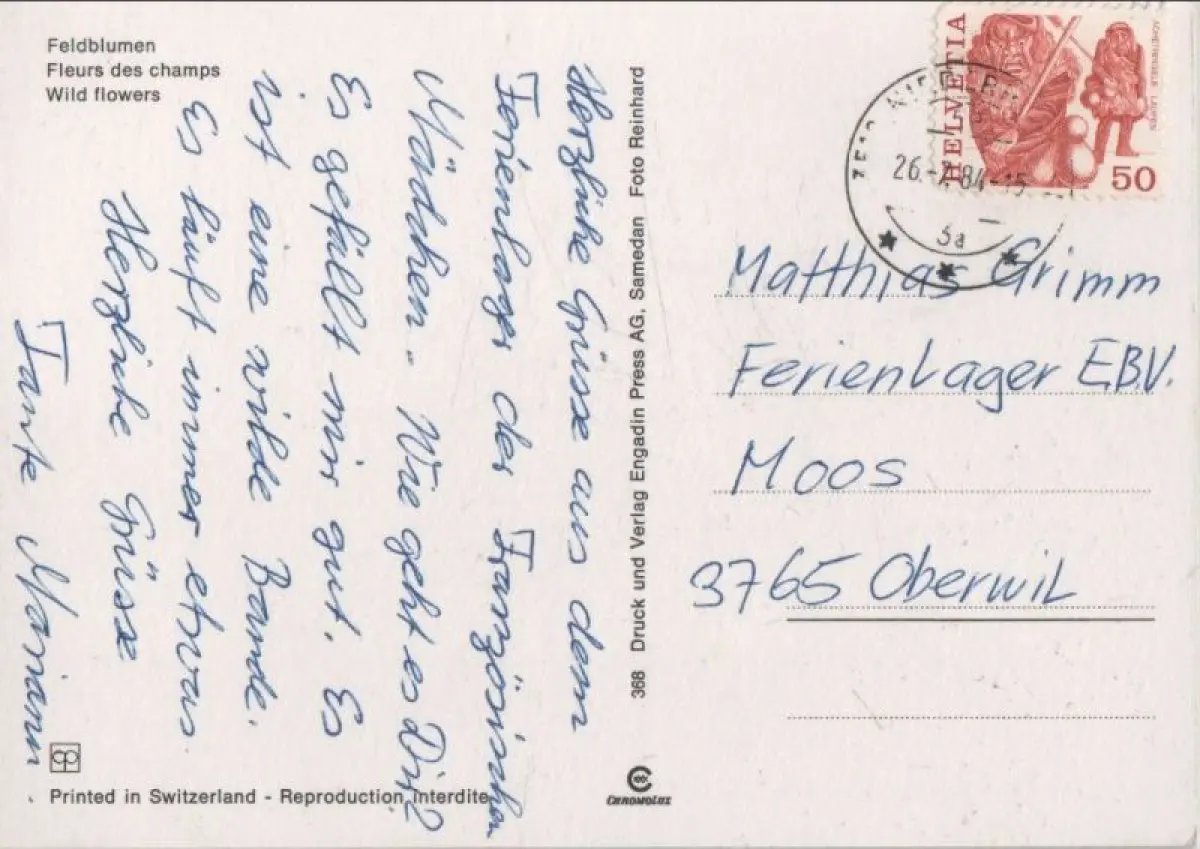 Feldblumen
Fleurs des champs
Wild flowers
Herzliche Grüsse aus dem
Ferienlager der Französischen
Mädchen. Wie geht es Dir?
Es gefällt mir gut. Es
ist eine wilde Bande.
Es läuft immer etwas.
Herzliche Grüsse
Tante Mariann
Printed in Switzerland - Reproduction interdite
368 Druck und Verlag Engadin Press AG, Samedan Foto Reinhard
CHROMOLUX
HELVETIA
ACHETRINGELE LAUPEN
50
26.-7.84-15
3a
Matthias Grimm
Ferienlager EBV.
Moos
3765 Oberwil